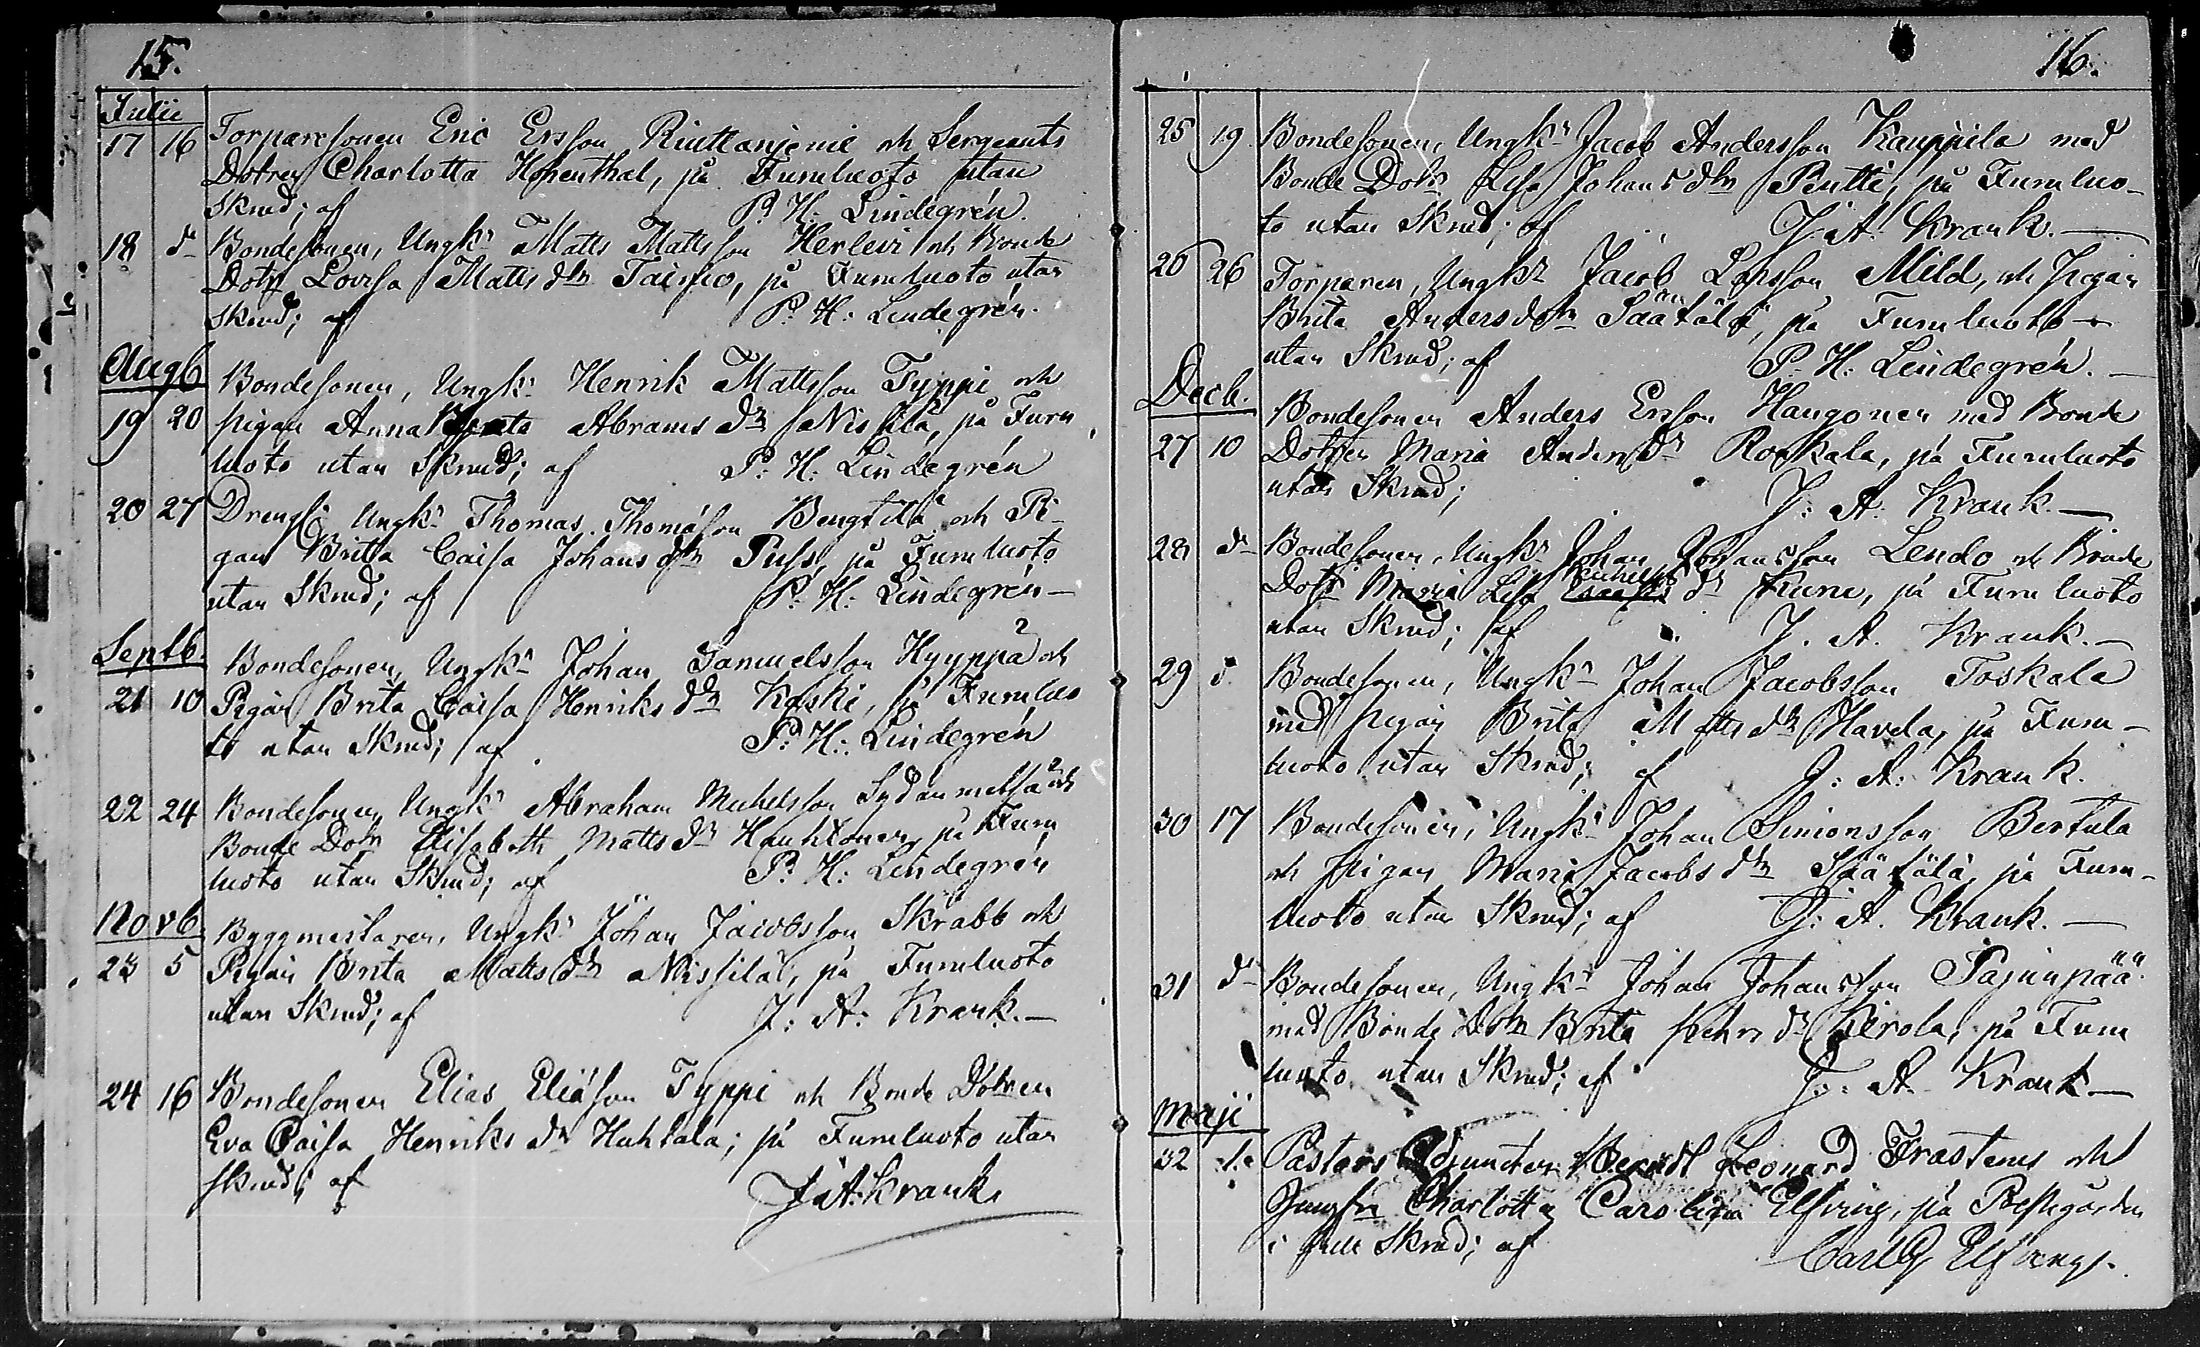 15.
Julii
17 16 Torparesonen Eric Ersson Riuttanjemi och Sergeants
Dotren Charlotta Hohenthal, på Furuluoto utan
Skrud; af P: H: Lindegrén.
18 do Bondesonen, Ungkn Matts Mattsson Herlevi och Bonde
Dotn Lovisa Matts dtr på Furuluoto utan
Skrud; af P: H: Lindegrén.
Augb
19 20 Bondesonen, Ungkn Henrik Mattsson Typpi och
pigan Anna Brita Abrams dr Nissilä, på Furu
luoto utan Skrud; af P: H: Lindegrén
20 27 Drengen Ungkn Thomas Thomasson Bengtilä och Pi-
gan Britta Caisa Johans dtr Puss, på Furuluoto
utan Skrud; af P: H: Lindegrén –
Septb.
21 10 Bondesonen, Ungkn Johan Samuelsson Hyyppä och
Pigan Brita Caisa Henriks dtr Koski, på Furuluo
to utan Skrud; af P: H: Lindegrén
22 24 Bondesonen Ungkn Abraham Michelsson Sydänmetsä och
Bonde Dotn Elisabeth Matts dr Hauhtonen, på Furu
luoto utan Skrud; af P: H: Lindegrén
Novb
23 5 Byggmästaren, Ungkn Johan Jacobsson Skrabb och
Pigan Brita Matts dtr Nissilä, på Furuluoto
utan Skrud; af J: A: Krank. –
24 16 Bondesonen Elias Eliasson Typpi och Bonde Dotren
Eva Caisa Henriks dr Huhtala; på Furuluoto utan
skrud; af J: A: Krank.
16.
25 19 Bondesonen, Ungkn Jacob Andersson Kauppila med
Bonde Dotn Lisa Johans dtr Pentti, på Furuluo-
to utan Skrud; af J: A: Krank. –
26 26 Torparen, Ungkn Jacob Mild, och pigan
Brita Anders dotr på Furuluoto –
utan Skrud; af P: H: Lindegrén. –
Decb.
27 10 Bondesonen Anders Ersson Haugonen med Bonde
Dotren Maria Anders dr Roskala, på Furuluoto
utan Skrud; J: A: Krank. –
28 do Bondesonen, Ungkn Johan Johansson Lendo och Bonde
Dotr Maria Lisa Michels dr på Furuluoto
utan Skrud; af J. A. Krank. –
29 d Bondesonen, Ungkn Johan Jacobsson Toskala
med pigan Brita Matts dtr Havela, på Furu-
luoto utan Skrud; af J: A: Krank.
30 17 Bondesonen, Ungkn Johan Simonsson Bertula
och pigan Maria Jacobs dtr Säätälä, på Furu-
luoto utan Skrud; af J: A. Krank. –
31 do Bondesonen, Ungkn Johan Johansson Pajunpää
med Bonde Dotn Brita Henrs dr Kerola, på Furu
luoto utan Skrud; af J: A. Krank –
maji
32 1. Pastors Adjuncten Berndt Leonard Frosterus och
Jungfru Charlotta Carolina Elfving, på Prestgården
i full Skrud; af Carl G Elfving.